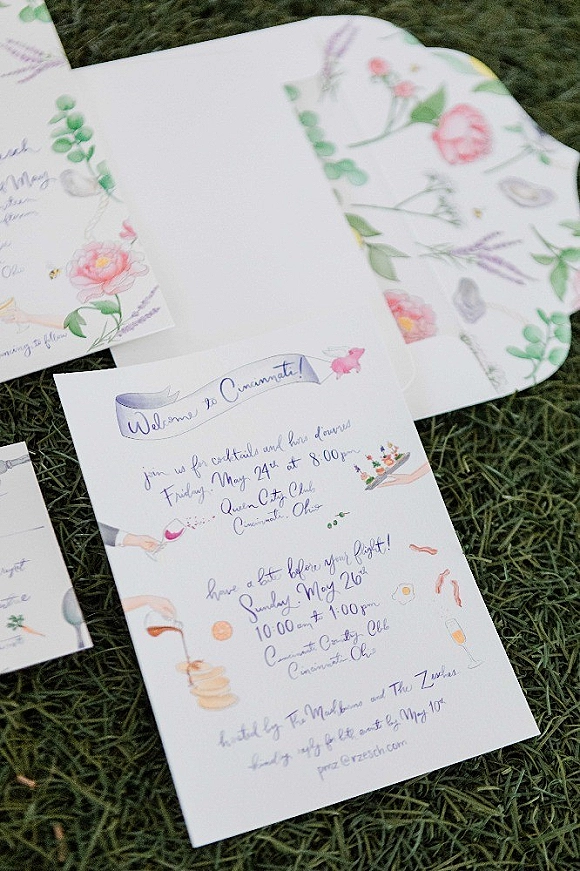 Welcome to Cincinnati!
join us for cocktails and hors d'ouvres
Friday, May 24th at 8:00 pm
Queen City Club
Cincinnati, Ohio
have a bite before your flight!
Sunday, May 26th
10:00 am to 1:00 pm
Cincinnati Country Club
Cincinnati Ohio
hosted by The and The Zesches
kindly reply for both events by May 10th
pmz@rzesch.com
of May
Ohio
dancing to follow